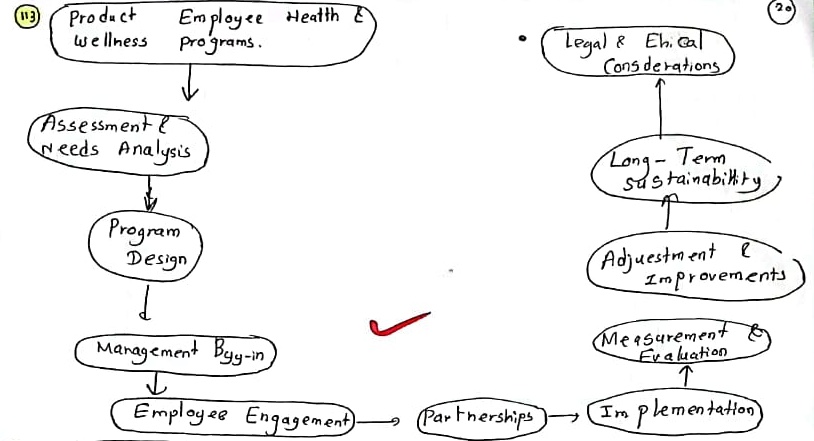 113
20
Product Employee Health &
Wellness Programs.
Assessment &
Needs Analysis
Program
Design
Management Byy-in
Employee Engagement
Partnerships
Implementation
Measurement &
Evaluation
Adjuestment &
Improvements
Long-Term
Sustainabillity
Legal & Ehical
Considerations